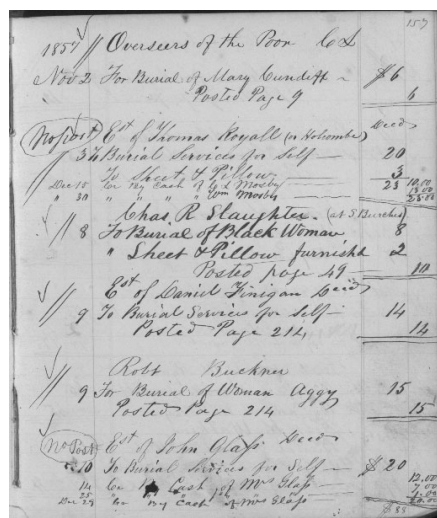 157
1857 // Overseers of the Poor
Nov 2 For Burial of Mary Cundiff $ 6
Posted Page 9 6
No post Est of Thomas Royall (n Holcombe) Decd
3 To Burial Services for Self 20
To Sheet & Pillow 3
Dec 10 Cr By Cash of Mosby 23 10.00
" 30 " " " " Wm Mosby 13.00
23.00
Chas. R Slaughter. (at S Burches)
// 8 To Burial of Black Woman 8
" Sheet & Pillow furnishd 2
Posted page 49 10
// Est of Daniel Finigan Decd
9 To Burial Services for Self 14
Posted Page 214 14
// Robt Buckner
// 9 For Burial of Woman Aggy 15
Posted Page 214 15
No Post Est of John Glass Decd
10 To Burial Services for Self $ 20
14 Cr By Cash of Mrs Glass 12.00
25 7.00
Dec 29 Cr By Cash of Mrs Glass 1.00
20.00
$ 88